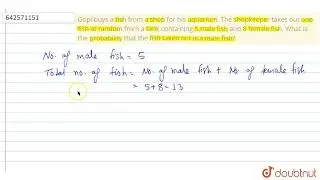 642571151
Gopi buys a fish from a shop for his aquarium. The shopkeeper takes out one
fish at random from a tank containing 5 male fish and 8 female fish. What is
the probability that the fish taken out is a male fish?
No. of male fish = 5
Total no. of fish = No. of male fish + No. of female fish
= 5+8 = 13
doubtnut